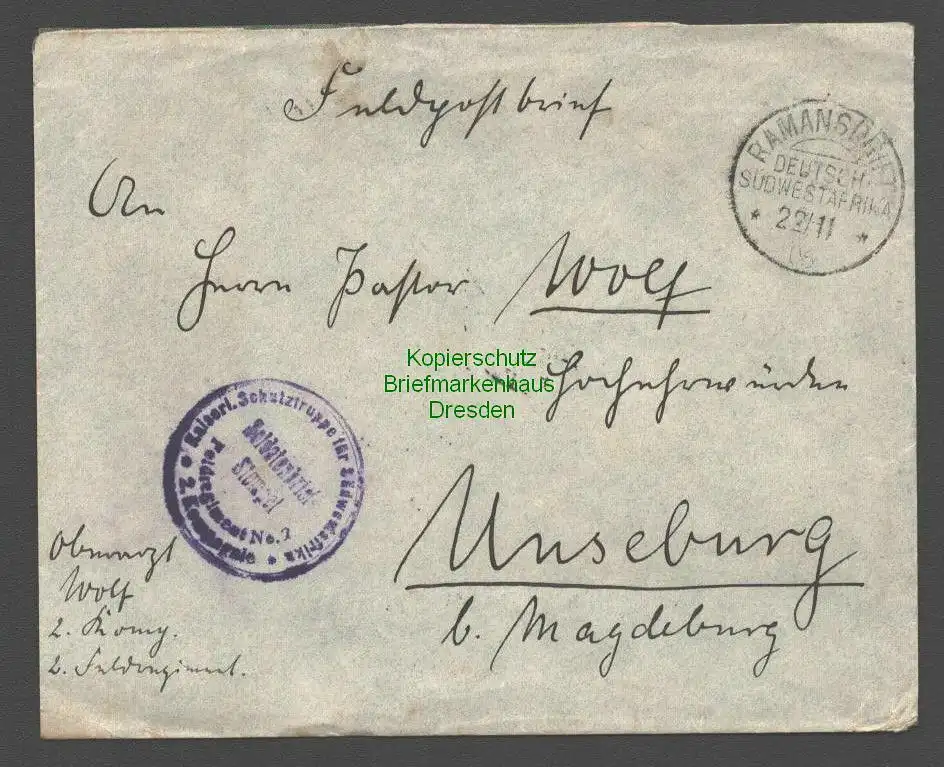 Feldpostbrief
RAMANSDRIFT
DEUTSCH-
SÜDWESTAFRIKA
* 29/11 *
An
Herrn Pastor Wolf
Hochehrwürden
Kopierschutz
Briefmarkenhaus
Dresden
Kaiserl. Schutztruppe für Südwestafrika
* 2. Kompagnie *
Feldregiment No. 2
Soldatenbrief
Stempel
Unseburg
b. Magdeburg
Oberarzt
Wolf
2. Komp.
2. Feldregiment.